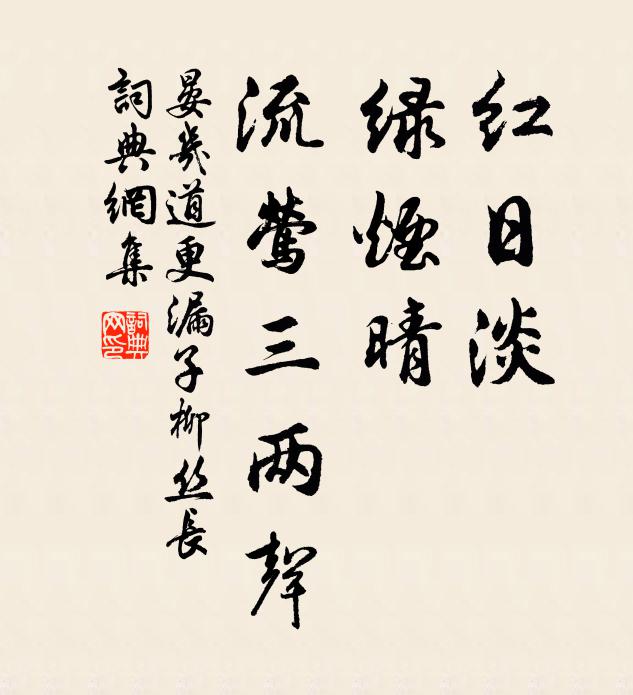 红日淡
绿烟晴
流莺三两聲
晏幾道更漏子柳丝長
詞典網集
詞典网印